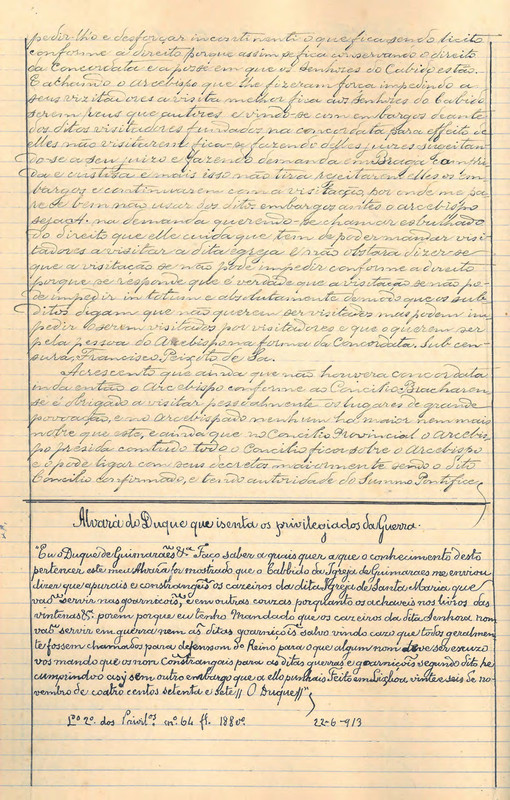 pedir-lho e desforçar incontinenti o que fica sendo licito
conforme a direito porque assim se fica conservando o direito
da Concordata e a posse em que os Senhores do Cabido estão.
E achando o Arcebispo que lhe fizeram força impedindo a
seus vizitadores a visita melhor fica aos Senhores do Cabido
serem reus que autores, e vindo-se com embargos deante
dos ditos visitadores fundados na concordata para effeito de
elles não visitarem fica-se fazendo delles juizes sugeitan-
do-se a seu juizo e fazendo demanda em Braga
da e custosa e mais isso não tira rejeitarem elles os Em-
bargos e continuarem com a visitação, por onde me pa-
rece bem não usar dos ditos embargos antes o arcebispo
seja A. na demanda querendo-se chamar esbulhado
do direito que elle cuida que tem de poder mandar visi-
tadores a visitar a dita egreja e não obstara dizer-se
que a visitação se não pode impedir conforme a direito
porque se responde que é verdade que a visitação se não po-
de impedir in totum e absolutamente de modo que os sub-
ditos digam que não querem ser visitados mas podem im-
pedir o serem visitados por visitadores e que o querem ser
pela pessoa do Arcebispo na forma da Concordata. Sub cen-
sura, Francisco Peixoto de Sa.
Acrescento que ainda que não houvera concordata
inda então o Arcebispo conforme ao Concilio Bracharen-
se é obrigado a visitar pessoalmente os lugares de grande
povoação, e no Arcebispado nenhum ha maior nem mais
nobre que este, e ainda que no Concilio Provincial o Arcebis-
po presida comtudo todo o Concilio fica sobre o Arcebispo
e o pode ligar com seus decretos maiormente sendo o dito
Concilio confirmado, e tendo autoridade do Summo Pontifice
Alvará do Duque que isenta os privilegiados da Guerra.
"Eu o Duque de Guimaraẽs &ª Faço saber a quais quer a que o conhecimento desto
pertencer este meu Alvara for mostrado que o Cabbido da Igreja de Guimaraes me enviou
dizer que apurais e constrangis os caseiros da dita Igreja de Santa Maria que
vaõ servir nas goarnições, e em outras couzas porquanto os achaveis nos livros das
vintenas &ª. porem porque eu tenho Mandado que os caseiros da dita Senhora nom
vaõ servir em guerra nem as ditas goarnições salvo vindo cazo que todos geralmen-
te fossem chamados para defensom do Reino para o que algum nom deve ser escuzo
vos mando que os nom Constrangais para as ditas guerras e goarnições segundo dito he
cumprindo o asy sem outro embargo que a ello punhais Feito em Lixboa vinte e seis de no-
vembro de coatro centos setenta e sete // O Duque //"
Lº 2º. dos Privilos. nº. 64 fl. 188 vº. 22-6-913